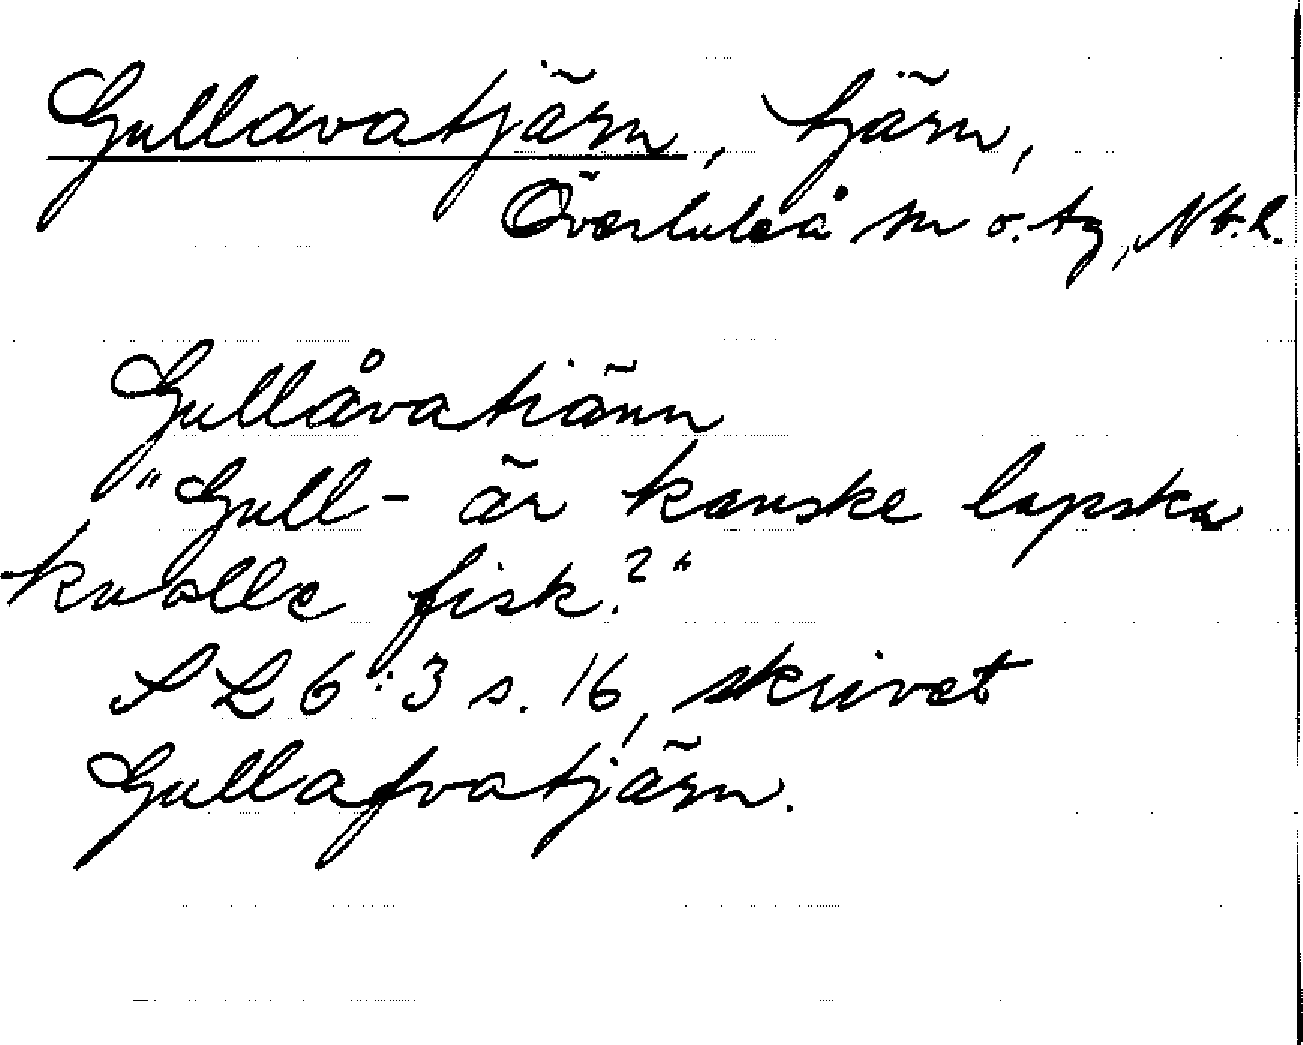 Gullavatjärn, tjärn,
Överluleå sn o. tg, Nb.l.
Gullåvatiänn
"Gull- är kanske lapska
kuolle fisk?"
SL 6:3 s. 16, skrivet
Gullafvatjärn.